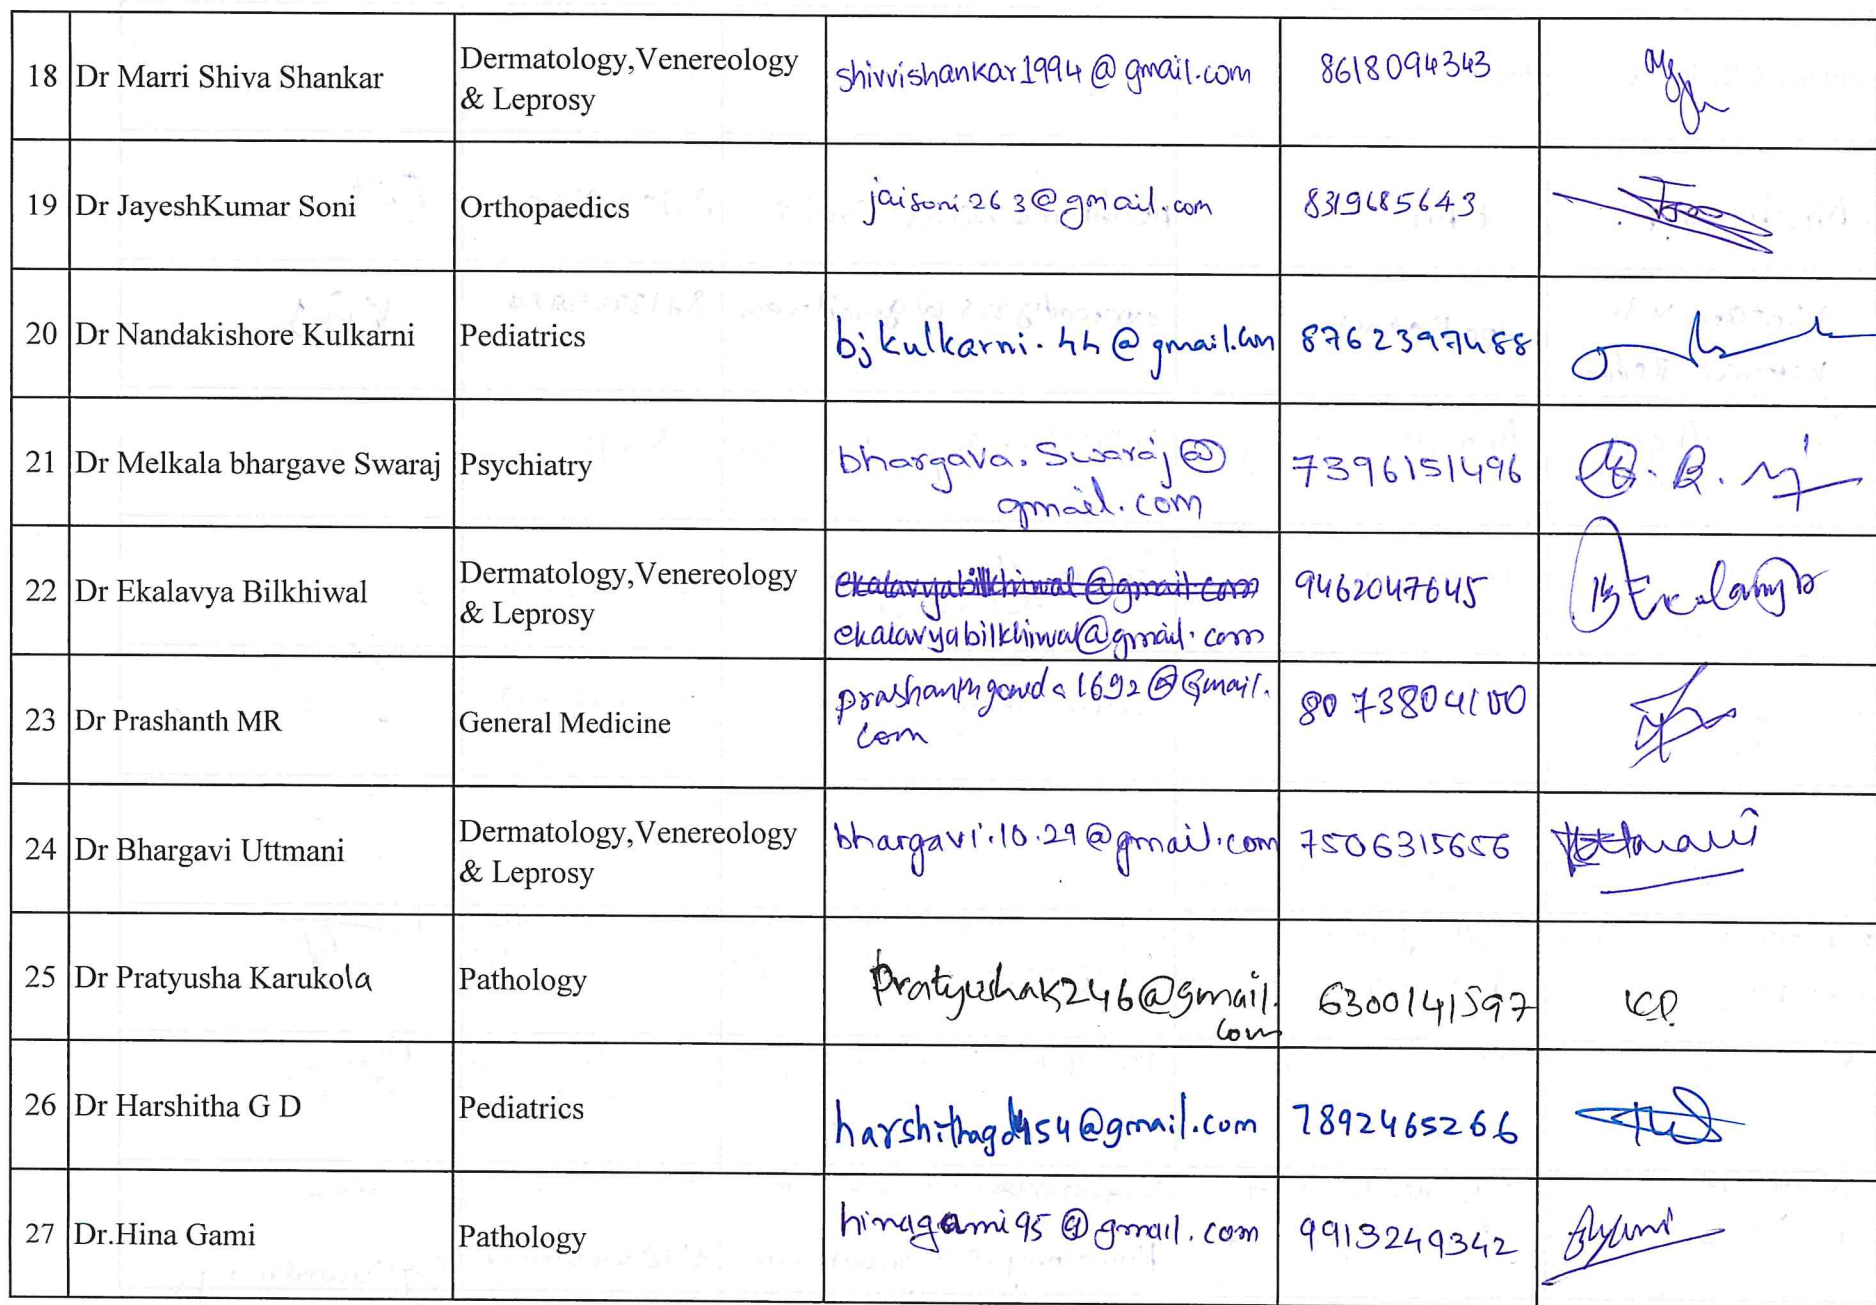 18 Dr Marri Shiva Shankar Dermatology,Venereology & Leprosy shivvishankar1994@gmail.com 8618094343
19 Dr JayeshKumar Soni Orthopaedics jaisoni263@gmail.com 8319685643
20 Dr Nandakishore Kulkarni Pediatrics bjkulkarni.44@gmail.com 8762397488
21 Dr Melkala bhargave Swaraj Psychiatry bhargava.Swaraj@
gmail.com 7396151496
22 Dr Ekalavya Bilkhiwal Dermatology,Venereology & Leprosy ekalavyabilkhiwal@gmail.com
ekalavyabilkhiwal@gmail.com 9462047645 Ekalavya
23 Dr Prashanth MR General Medicine prashanthgowda1692@Gmail.
com 8073804100
24 Dr Bhargavi Uttmani Dermatology,Venereology & Leprosy bhargavi.10.29@gmail.com 7506315656
25 Dr Pratyusha Karukola Pathology Pratyushak246@gmail.
com 6300141597
26 Dr Harshitha G D Pediatrics harshithagd454@gmail.com 7892465266
27 Dr.Hina Gami Pathology hinagami95@gmail.com 9913249342